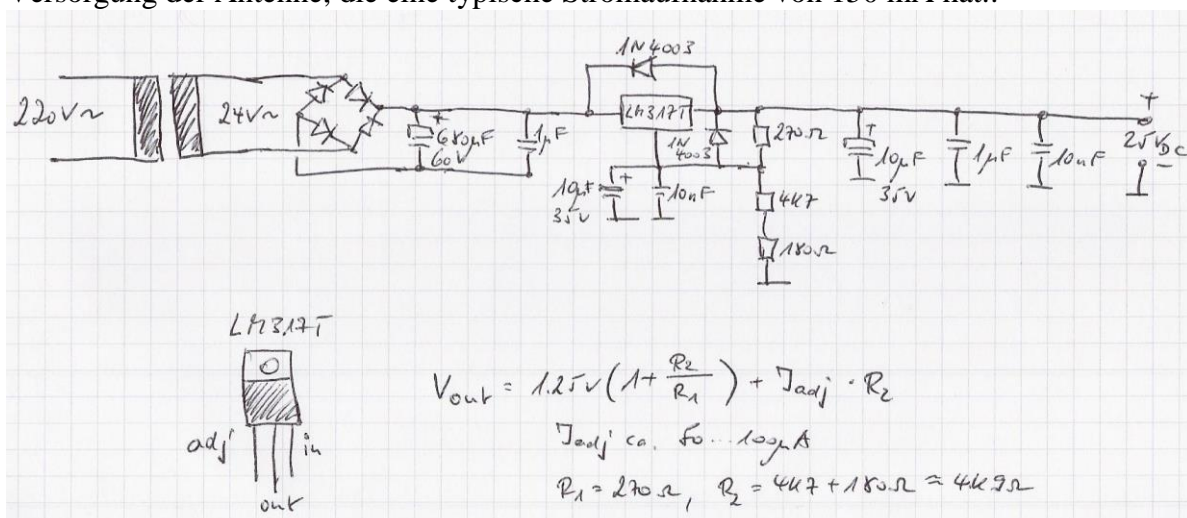 Versorgung der Antenne, die eine typische Stromaufnahme von 150 mA hat..
1N4003
220V~
24V~
680µF
60V
1µF
LM317T
1N
4003
270Ω
10µF
35V
1µF
10nF
+
25VDC
10µF
35V
10nF
4K7
180Ω
LM317T
adj
in
out
Vout = 1.25V (1 + R2/R1) + Iadj · R2
Iadj ca. 50...100µA
R1 = 270Ω, R2 = 4K7 + 180Ω ≈ 4K9Ω